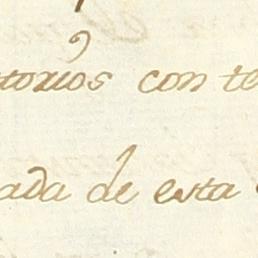 torios con te
ada de esta